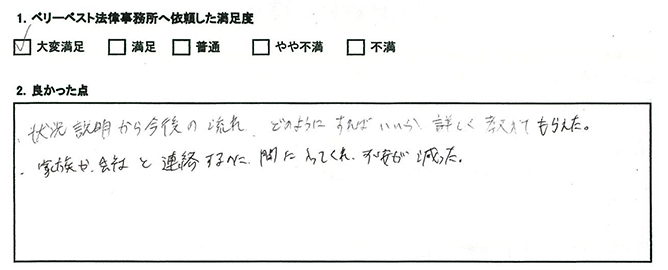 1. ベリーベスト法律事務所へ依頼した満足度
☑ 大変満足 □ 満足 □ 普通 □ やや不満 □ 不満
2. 良かった点
・状況説明から今後の流れ、どのようにすればいいか詳しく教えてもらえた。
・家族が会社と連絡する 間に入ってくれ、不安が減った。